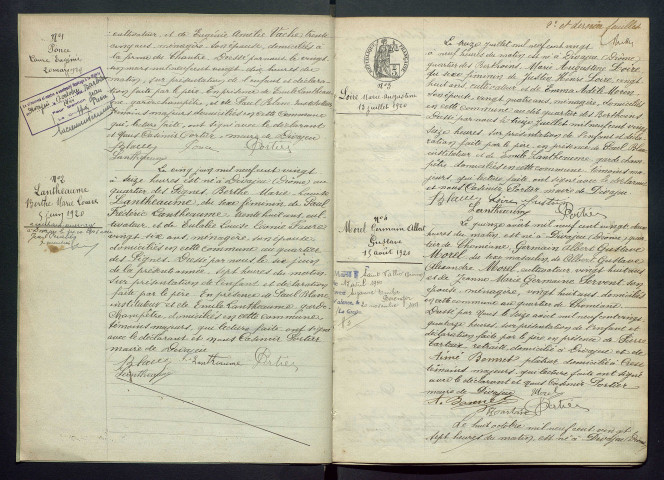 N°1
Ponce
20 mars 1920
cultivateur et de Eugénie Amélie Vache, trente
cinq ans, ménagère, son épouse, domiciliés à
la ferme des Chantre. Dressé par nous le vingt
mars mil neuf cent vingt, dix heures du
matin, sur présentation de l'enfant et déclara-
tion faite par le père. En présence de Emile Lantheaume
garde champêtre, et de Paul Blanc instituteur
témoins majeurs domiciliés en cette commune
qui lecture faite, ont signé avec le déclarant
et Nous Casimir Portier, maire de Divajeu
Blanc Ponce Portier
Lantheaume
N°2
Lantheaume
Berthe Marie Louise
5 juin 1920
Le cinq juin mil neuf cent vingt
à seize heures est née à Divajeu (Drôme) au
quartier des Pignes, Berthe Marie Louise
Lantheaume, du sexe féminin, de Paul
Frédéric Lantheaume trente huit ans, cul-
tivateur et de Eulalie Louise
vingt six ans, ménagère, son épouse
domiciliés en cette commune au quartier
des Pignes. Dressé par nous le six juin
de la présente année, sept heures du matin
sur présentation de l'enfant et déclaration
faite par le père. En présence de Paul Blanc
instituteur et de Emile Lantheaume garde
champêtre, domiciliés en cette commune
témoins majeurs, qui lecture faite ont signé
avec le déclarant et nous Casimir Portier
maire de Divajeu
Blanc Lantheaume Portier
Lantheaume
2e et dernier feuillet
N°3
Loire Marie Augustine
13 juillet 1920
Le treize juillet mil neuf cent vingt
à neuf heures du matin est née à Divajeu (Drôme)
quartier des Berthoins, Marie Augustine Loire,
du sexe féminin de Justin Henri Loire, vingt
huit ans cultivateur et de Emma
épouse, vingt quatre ans, ménagère, domiciliés
en cette commune au quartier des Berthoins
Dressé par nous le treize juillet mil neuf cent vingt
seize heures, sur présentation de l'enfant et décla-
ration faite par le père en présence de Paul Blanc
instituteur et de Emile Lantheaume, garde cham-
pêtre, domiciliés en cette commune témoins
majeurs, qui lecture faite ont signé avec le déclarant
et nous Casimir Portier maire de Divajeu
Blanc Loire Justin
Lantheaume Portier
N°4
Morel Germain Albert
Gustave
15 août 1920
Le quinze août mil neuf cent vingt, deux
heures du matin est né à Divajeu (Drôme) quartier
de Chomeane, Germain Albert Gustave
Morel du sexe masculin de Albert Gustave
Alexandre Morel, cultivateur vingt huit ans
et de Jeanne Marie Germaine Féront son
épouse, ménagère, vingt huit ans, domiciliés
en cette commune au quartier de Chomeane
Dressé par nous le seize août mil neuf cent vingt
quatorze heures, sur présentation de l'enfant et
déclaration faite par le père en présence de Pierre
retraité, domicilié à Divajeu et de
Aimé Bonnet domicilié à Crest
témoins majeurs, qui lecture faite ont signé
avec le déclarant et nous Casimir Portier
maire de Divajeu Morel
A. Bonnet
Portier
Le huit octobre mil neuf cent vingt
sept heures du matin, est né à Divajeu